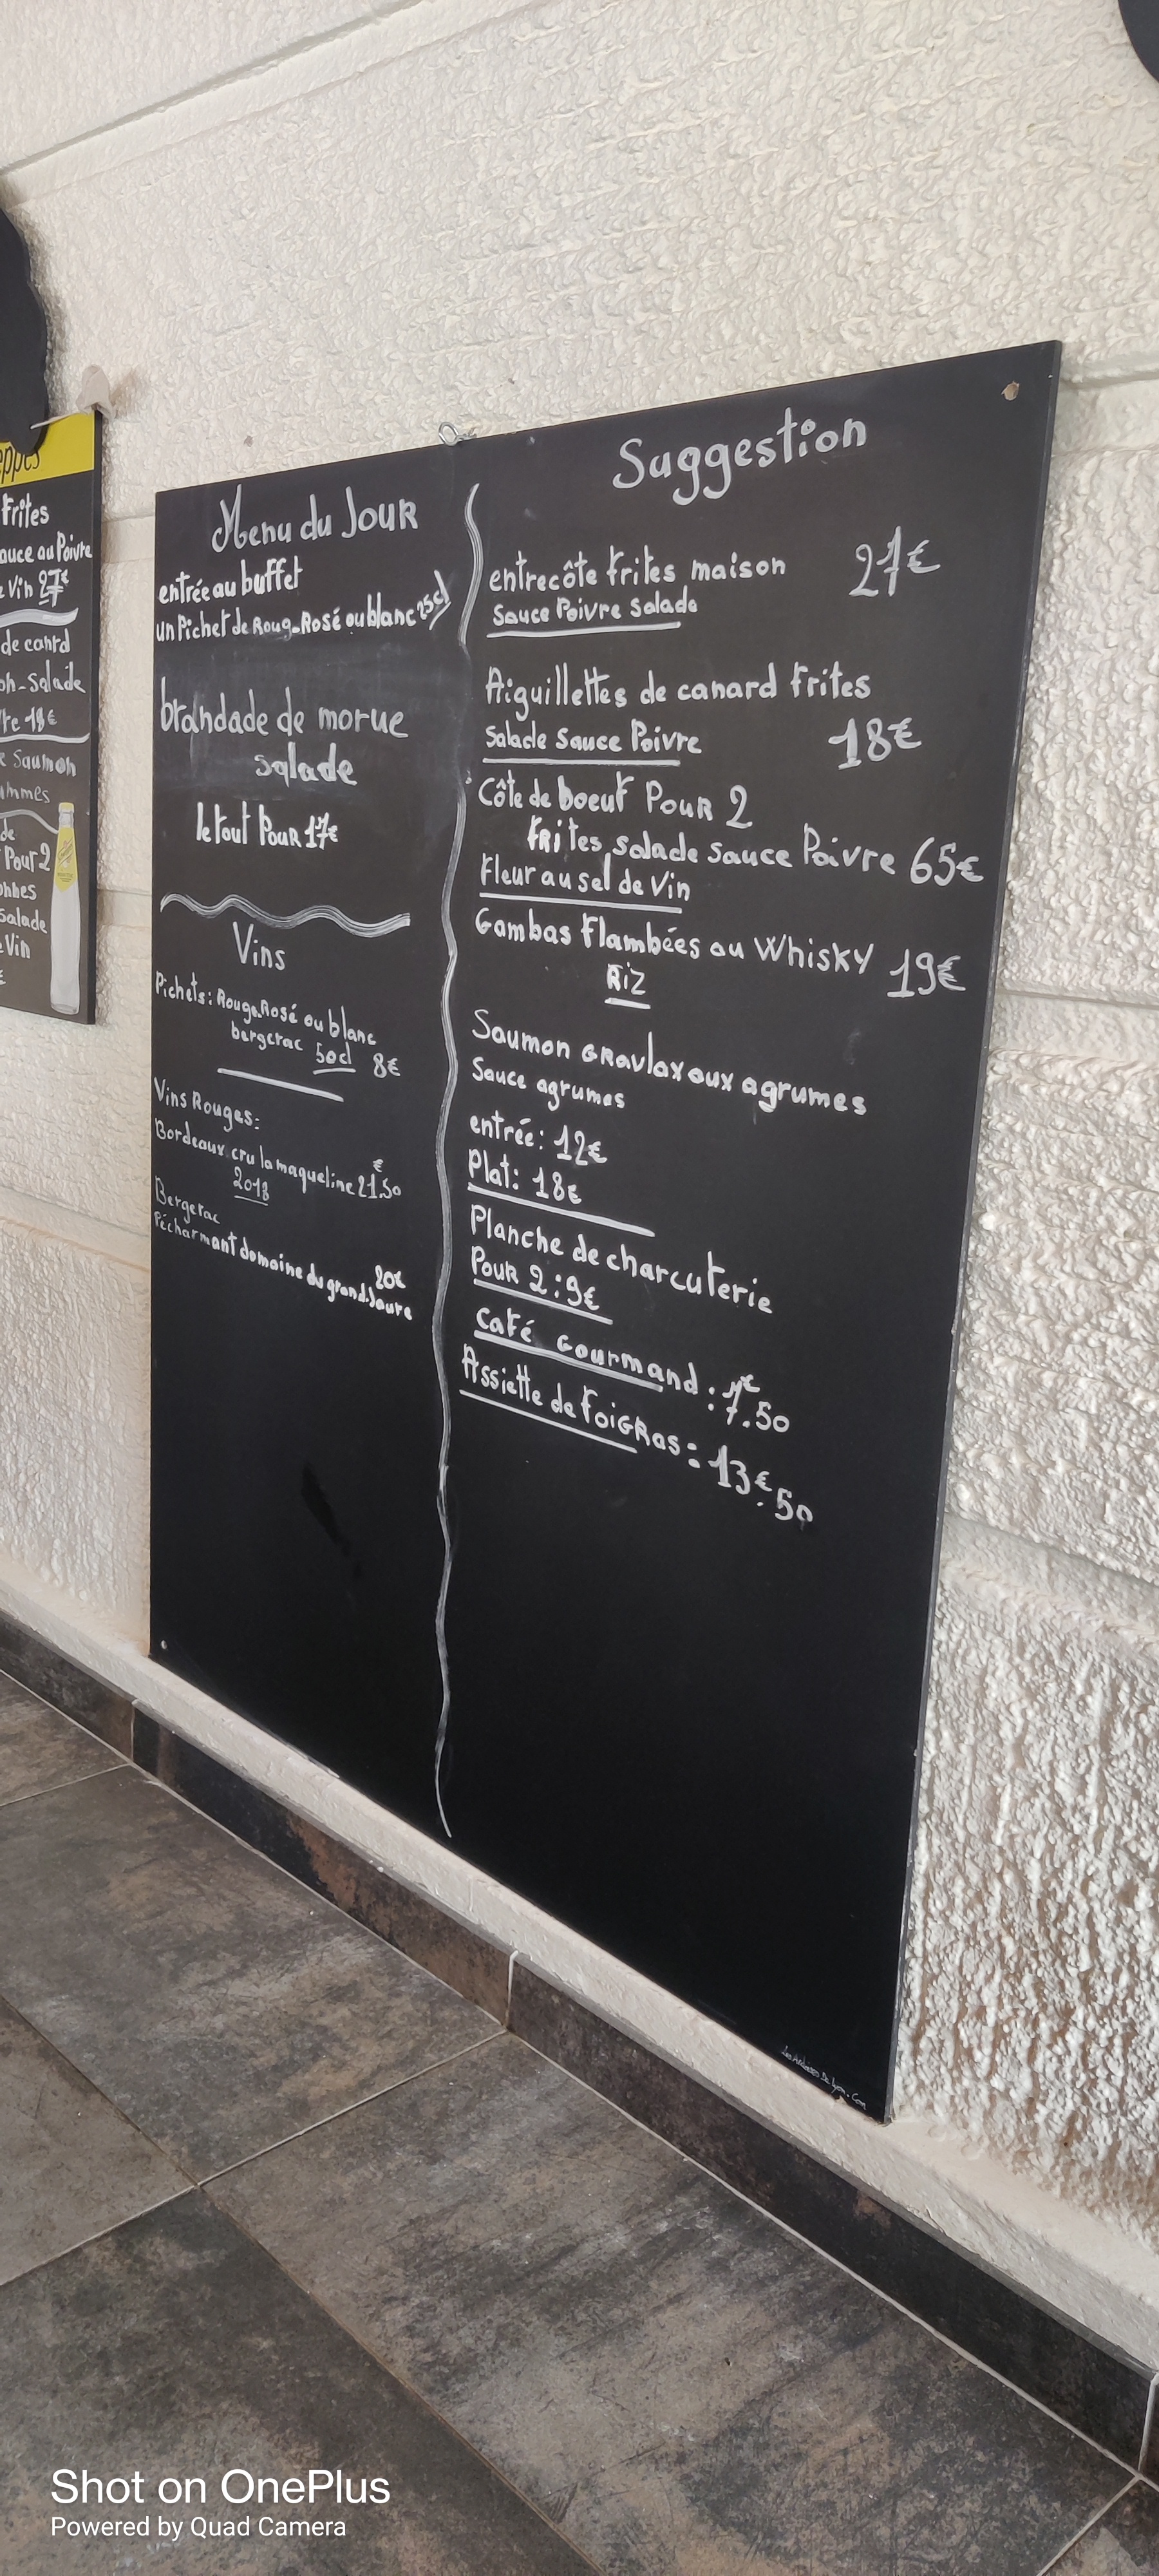 eppes
Frites
auce au Poivre
e Vin 27€
de canrd
oh-Salade
18€
e Saumon
ummes
de
Pour 2
onnes
Salade
e Vin
€
Menu du Jour
entrée au buffet
un Pichet de Roug-Rosé ou blanc 25cl)
brandade de morue
salade
le tout Pour 17€
Vins
Pichets: Rouge.Rosé ou blanc
bergerac 50cl 8€
Vins Rouges:
Bordeaux: cru la maqueline 21€.50
2018
Bergerac
Pécharmant domaine du grand.Jaure 20€
Suggestion
entrecôte frites maison 27€
Sauce Poivre salade
Aiguillettes de canard frites
Salade Sauce Poivre 18€
Côte de boeuf Pour 2
frites salade sauce Poivre 65€
Fleur au sel de Vin
Gambas Flambées au Whisky 19€
Riz
Saumon Gravlax aux agrumes
Sauce agrumes
entrée: 12€
Plat: 18€
Planche de charcuterie
Pour 2: 9€
Café Gourmand: 7€.50
Assiette de Foigras: 13€.50
Les Ardoises De Lyon.Com
Shot on OnePlus
Powered by Quad Camera